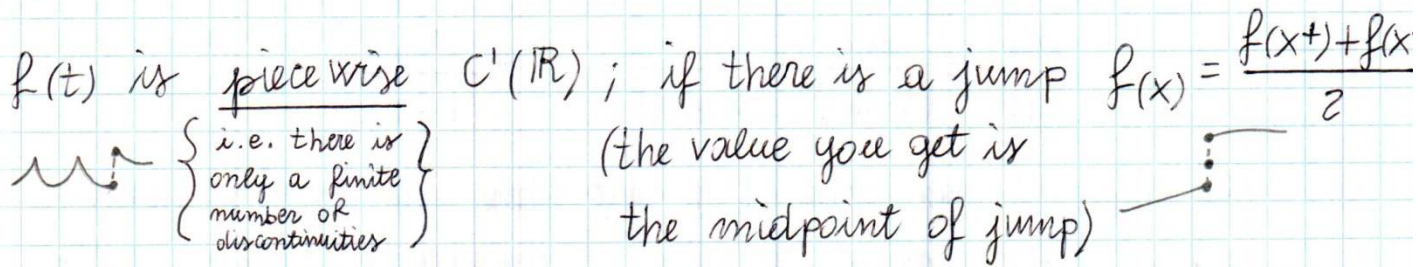 f(t) is piecewise C'(ℝ); if there is a jump f(x) = f(x+)+f(x / 2
{i.e. there is
only a finite
number of
discontinuities}
(the value you get is
the midpoint of jump)